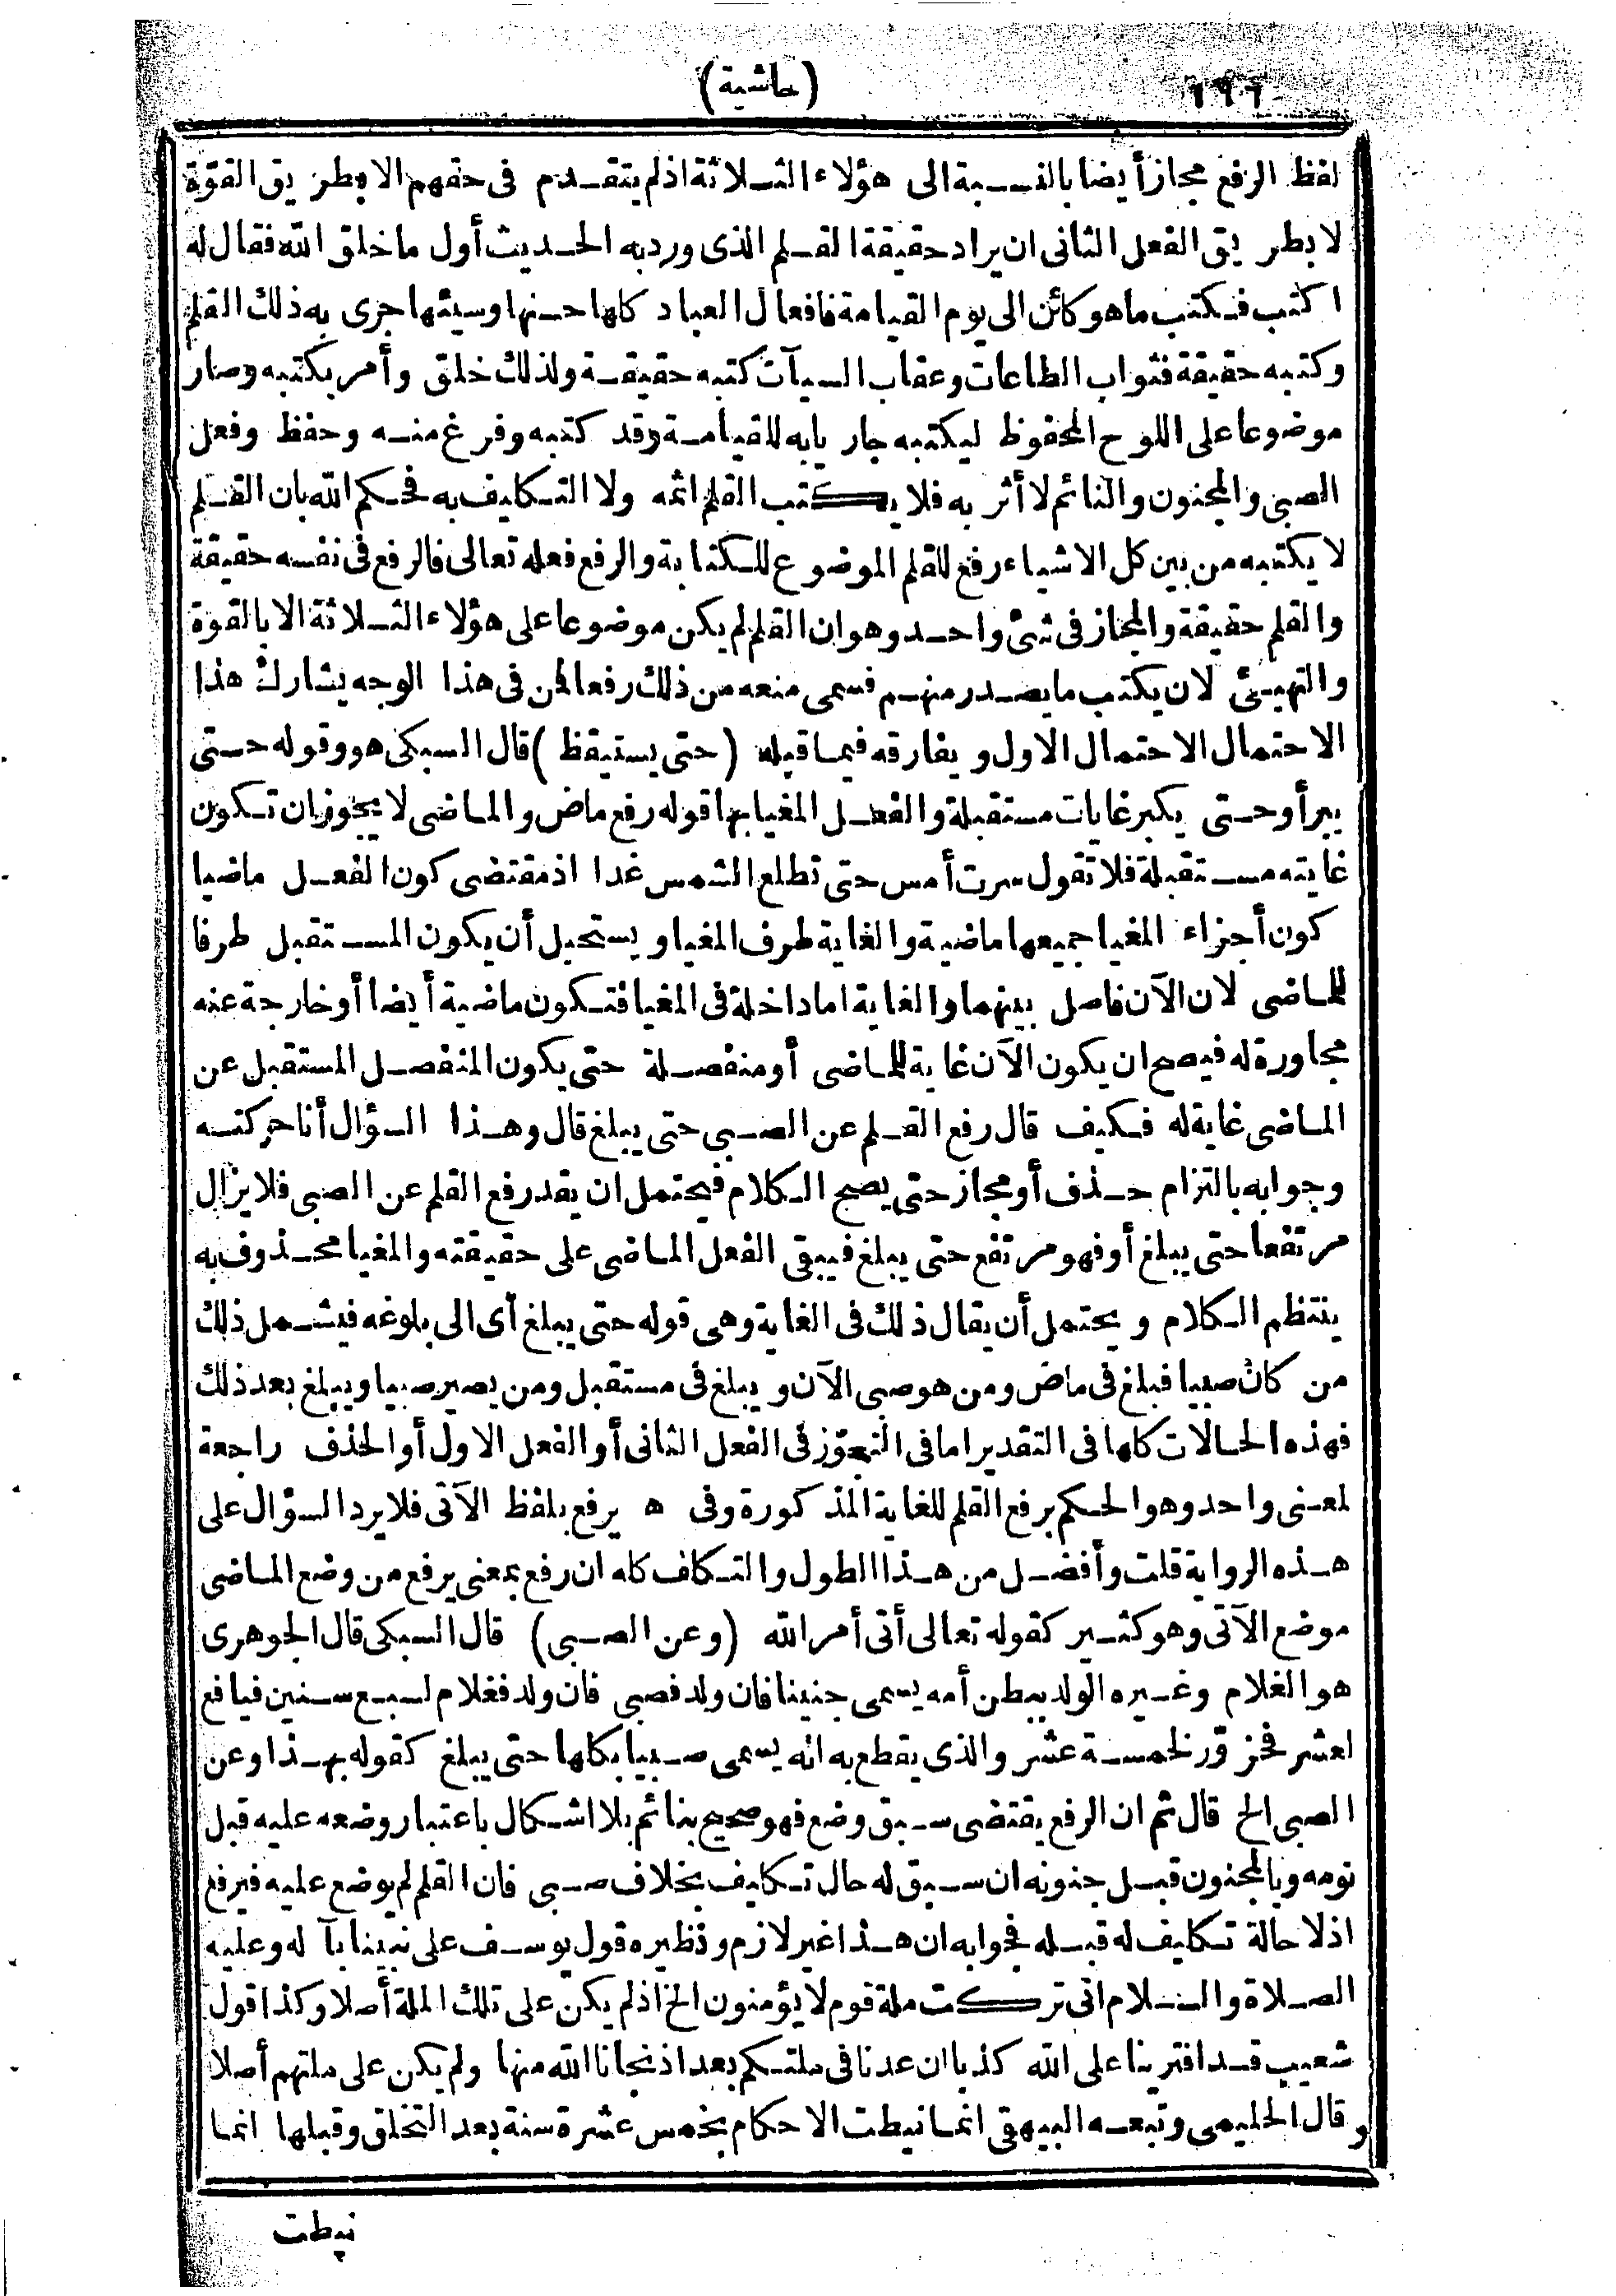 ١٩٦
(حاشية)
لفظ الرفع مجاز أيضا بالنسبة الى هؤلاء الثلاثة اذ لم يتقدم فى حقهم الا بطريق القوّة
لا بطريق الفعل الثانى ان يراد حقيقة القلم الذى ورد به الحديث أول ما خلق الله فقال له
اكتب فكتب ما هو كائن الى يوم القيامة فافعال العباد كلها حسنها وسيئها جرى به ذلك القلم
وكتبه حقيقة فثواب الطاعات وعقاب السيآت كتبه حقيقة ولذلك خلق وأمر بكتبه وصار
موضوعا على اللوح المحفوظ ليكتبه جاريا به للقيامة وقد كتبه وفرغ منه وحفظ وفعل
الصبى والمجنون والنائم لا أثر به فلا يكتب القلم اثمه ولا التكليف به فحكم الله بان القلم
لا يكتبه من بين كل الاشياء رفع للقلم الموضوع للكتابة والرفع فعله تعالى فالرفع فى نفسه حقيقة
والقلم حقيقة والمجاز فى شئ واحد وهو ان القلم لم يكن موضوعا على هؤلاء الثلاثة الا بالقوة
والتهيئ لان يكتب ما يصدر منهم فسمى منعه من ذلك رفعا فمن فى هذا الوجه يشارك هذا
الاحتمال الاحتمال الاول ويفارقه فيما قبله (حتى يستيقظ) قال السبكى هو وقوله حتى
يبرأ وحتى يكبر غايات مستقبلة والفعل المغيا بها قوله رفع ماض والماضى لا يجوز ان تكون
غايته مستقبلة فلا تقول سرت أمس حتى تطلع الشمس غدا اذ مقتضى كون الفعل ماضيا
كون أجزاء المغيا جميعها ماضية والغاية طرف المغيا ويستحيل أن يكون المستقبل طرفا
للماضى لان الآن فاصل بينهما والغاية اما داخلة فى المغيا فتكون ماضية أيضا أو خارجة عنه
مجاورة له فيصح ان يكون الآن غاية للماضى أو منفصلة حتى يكون المنفصل المستقبل عن
الماضى غاية له فكيف قال رفع القلم عن الصبى حتى يبلغ قال وهذا السؤال أنا حركته
وجوابه بالتزام حذف أو مجاز حتى يصح الكلام فيحتمل ان يقدر رفع القلم عن الصبى فلا يزال
مرتفعا حتى يبلغ أو فهو مرتفع حتى يبلغ فيبقى الفعل الماضى على حقيقته والمغيا محذوف به
ينتظم الكلام ويحتمل أن يقال ذلك فى الغاية وهى قوله حتى يبلغ أى الى بلوغه فيشمل ذلك
من كان صبيا فبلغ فى ماض ومن هو صبى الآن ويبلغ فى مستقبل ومن يصير صبيا ويبلغ بعد ذلك
فهذه الحالات كلها فى التقدير اما فى التجوّز فى الفعل الثانى أو الفعل الاول أو الحذف راجعة
لمعنى واحد وهو الحكم برفع القلم للغاية المذكورة وفى ه يرفع بلفظ الآتى فلا يرد السؤال على
هذه الرواية قلت وأفضل من هذا الطول والتكلف كله ان رفع بمعنى يرفع من وضع الماضى
موضع الآتى وهو كثير كقوله تعالى أتى أمر الله (وعن الصبى) قال السبكى قال الجوهرى
هو الغلام وغيره الولد ببطن أمه يسمى جنينا فان ولد فصبى فان ولد فغلام لسبع سنين فيافع
لعشر فحزوّر لخمسة عشر والذى يقطع به انه يسمى صبيا بكلها حتى يبلغ كقوله بهذا وعن
الصبى الخ قال ثم ان الرفع يقتضى سبق وضع فهو صحيح بنائم بلا اشكال باعتبار وضعه عليه قبل
نومه وبالمجنون قبل جنونه ان سبق له حال تكليف بخلاف صبى فان القلم لم يوضع عليه فيرفع
اذ لا حالة تكليف له قبله فجوابه ان هذا غير لازم ونظيره قول يوسف على نبينا بآله وعليه
الصلاة والسلام انى تركت ملة قوم لا يؤمنون الخ اذ لم يكن على تلك الملة أصلا وكذا قول
شعيب قد افترينا على الله كذبا ان عدنا فى ملتكم بعد اذ نجانا الله منها ولم يكن على ملتهم أصلا
وقال الحليمى وتبعه البيهقى انما نيطت الاحكام بخمس عشرة سنة بعد التخلق وقبلها انما
نيطت